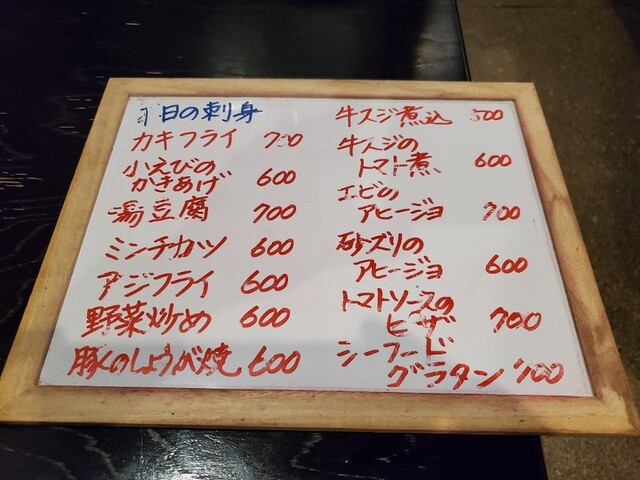 日の刺身
カキフライ 700
小えびの
かきあげ 600
湯豆腐 700
ミンチカツ 600
アジフライ 600
野菜炒め 600
豚のしょうが焼 600
牛スジ煮込 500
牛スジの
トマト煮 600
エビの
アヒージョ 700
砂ズリの
アヒージョ 600
トマトソースの
ピザ 700
シーフード
グラタン 700